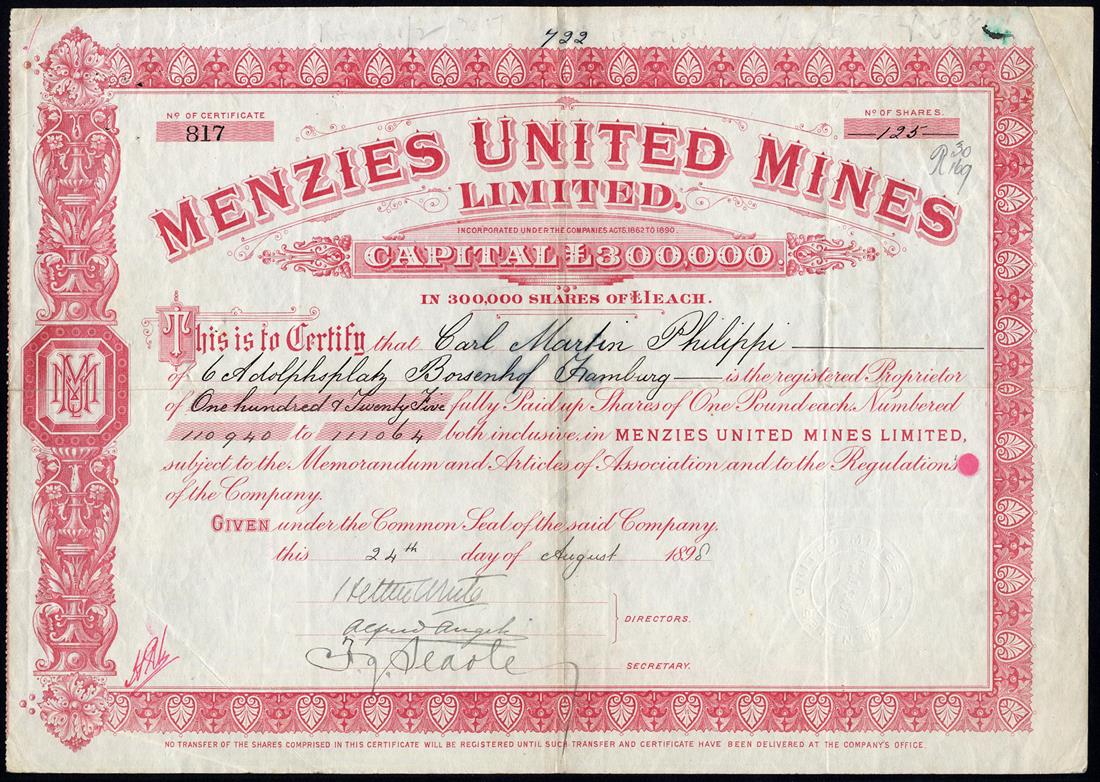 722
No OF CERTIFICATE
817
No OF SHARES.
125
R 30
169
MENZIES UNITED MINES
LIMITED.
INCORPORATED UNDER THE COMPANIES ACTS, 1862 TO 1890.
CAPITAL £300,000.
IN 300,000 SHARES OF £1 EACH.
This is to Certify that Carl Martin Philippi
of 6 Adolphsplatz Borsenhof Hamburg is the registered Proprietor
of One hundred & Twenty Five fully Paid up Shares of One Pound each. Numbered
110940 to 111064 both inclusive, in MENZIES UNITED MINES LIMITED,
subject to the Memorandum and Articles of Association and to the Regulations
of the Company.
GIVEN under the Common Seal of the said Company.
this 24th day of August 1898
Alfred
DIRECTORS.
SECRETARY.
NO TRANSFER OF THE SHARES COMPRISED IN THIS CERTIFICATE WILL BE REGISTERED UNTIL SUCH TRANSFER AND CERTIFICATE HAVE BEEN DELIVERED AT THE COMPANY'S OFFICE.